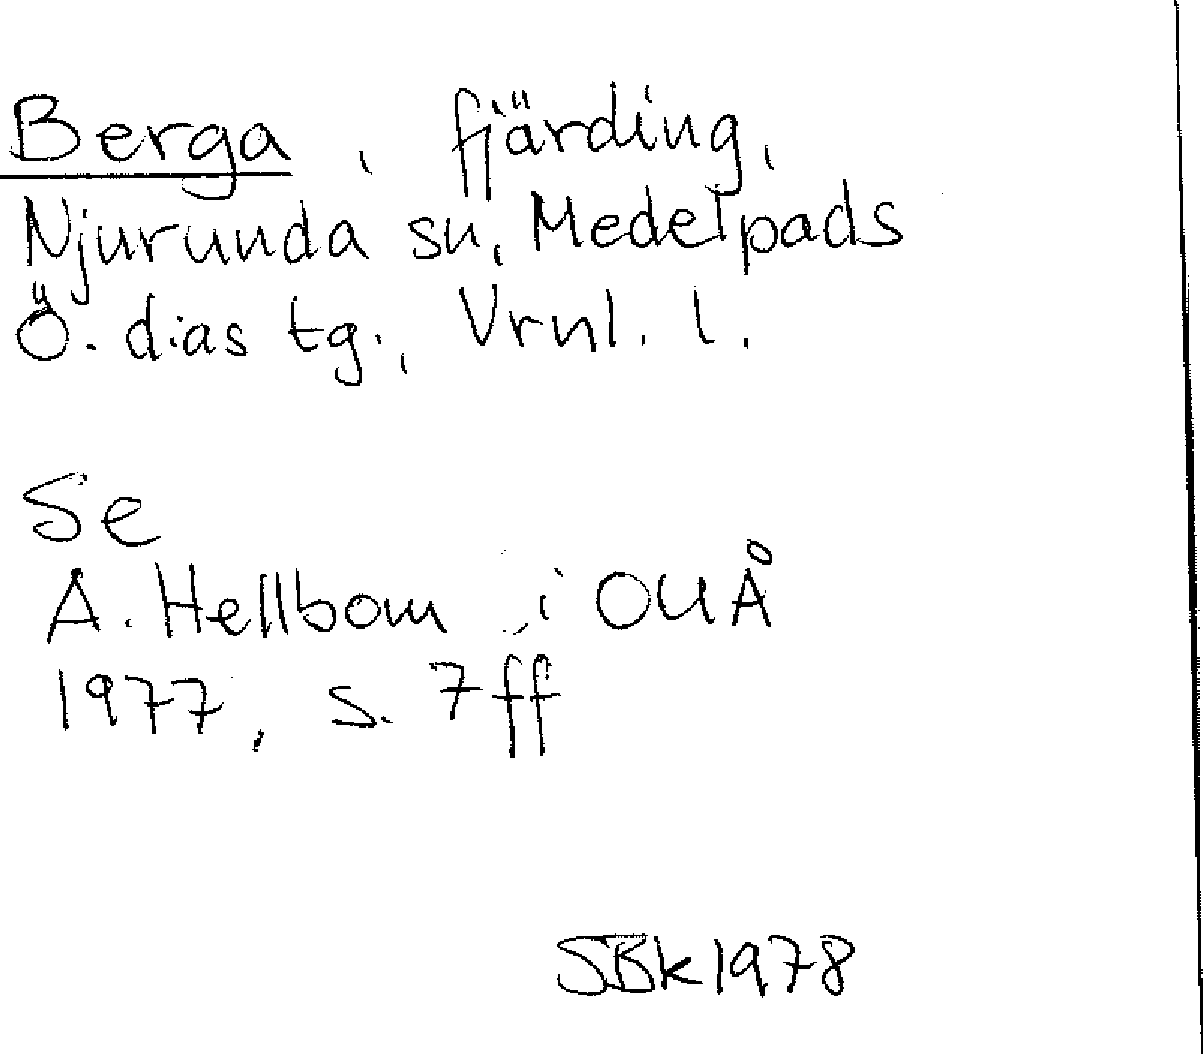 Berga, fjärding,
Njurunda sn, Medelpads
Ö. dias tg., Vrnl. l.
Se
A. Hellbom i OUÅ
1977, s. 7 ff
SBk 1978